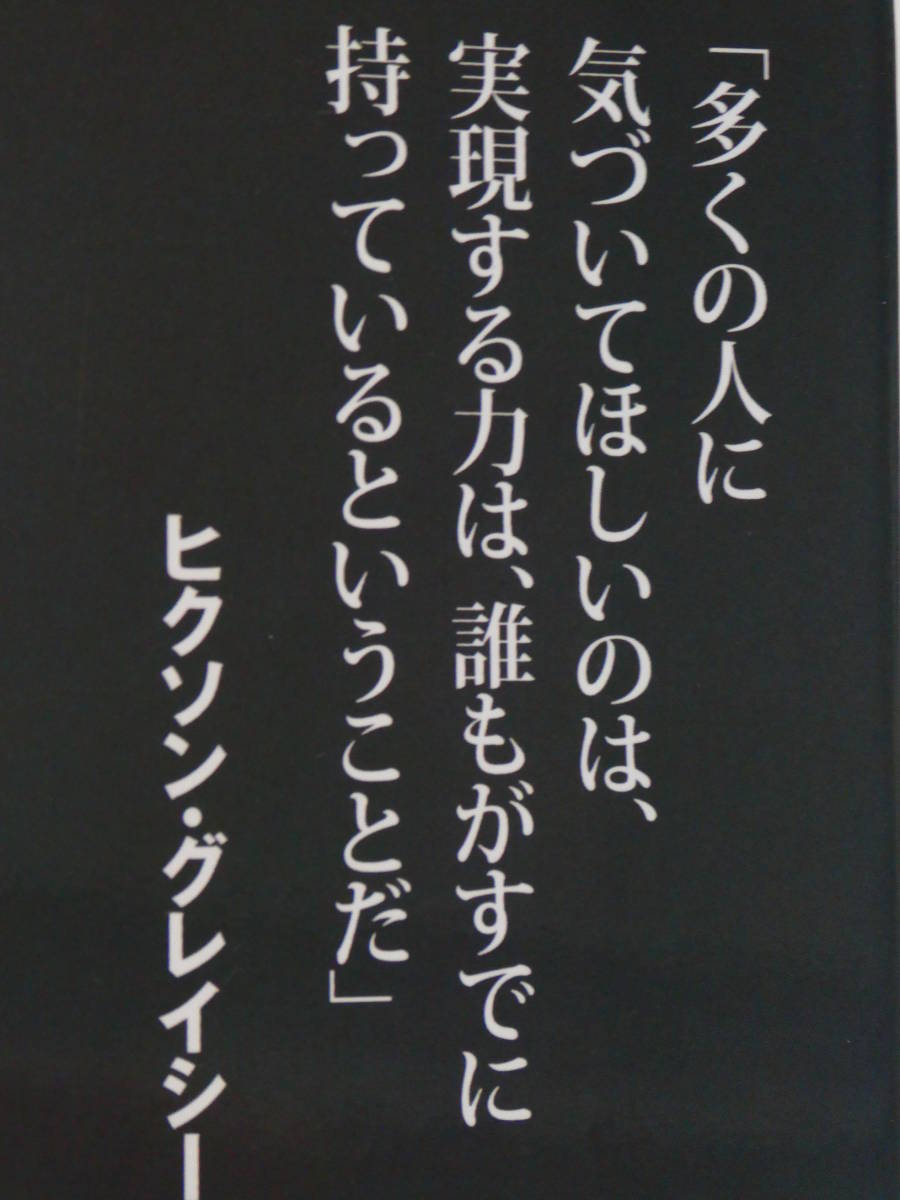 「多くの人に
気づいてほしいのは、
実現する力は、誰もがすでに
持っているということだ」
ヒクソン・グレイシー